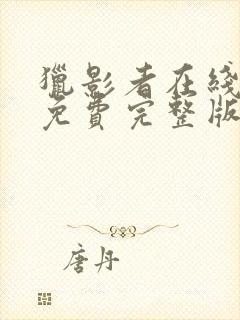 獵影者在綫
免費完整版
唐丹